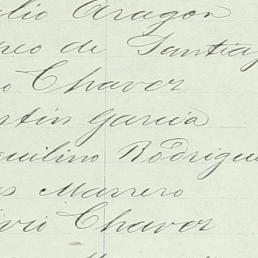 ulio Aragon
reo de Santiag
o Chavez
rstin Garcia
quilino Rodrigue
s Marrero
irio Chavez